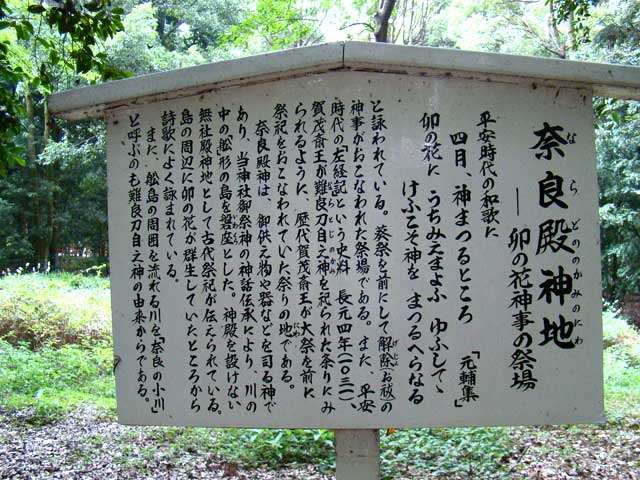 奈良殿神地
ならどののかみのにわ
―卯の花神事の祭場
平安時代の和歌に
四月、神まつるところ 「元輔集」
卯の花に うちみえまよふ ゆふしてゝ
けふこそ神を まつるへらなる
と詠われている。葵祭を前にして解除(お祓)の
けじょ
神事がおこなわれた祭場である。また、平安
時代の「左経記」という史料 長元四年(一〇三一)、
賀茂斎王が難良刀自之神を祀られた条りにみ
ならとじのかみ
られるように、歴代賀茂斎王が大祭を前に
祭祀をおこなわれていた祭りの地である。
にわ
奈良殿神は、御供え物や器などを司る神で
あり、当神社御祭神の神話伝承により、川の
中の舩形の島を磐座とした。神殿を設けない
いわくら
無社殿神地として古代祭祀が伝えられている。
島の周辺に卯の花が群生していたところから
詩歌によく詠まれている。
また、舩島の周囲を流れる川を「奈良の小川」
と呼ぶのも難良刀自之神の由来からである。